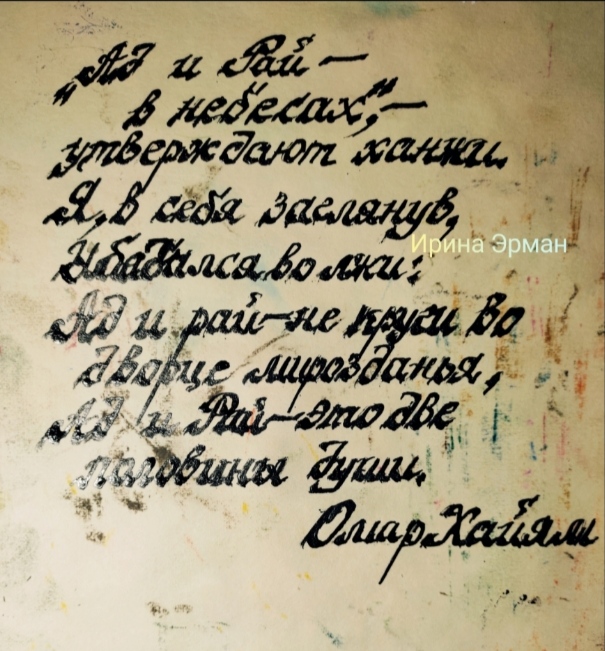 "Ад и Рай —
в небесах", —
утверждают ханжи.
Я, в себя заглянув,
Убедился во лжи:
Ад и рай — не круги во
дворце мирозданья,
Ад и Рай — это две
половины души.
Омар Хайям
Ирина Эрман